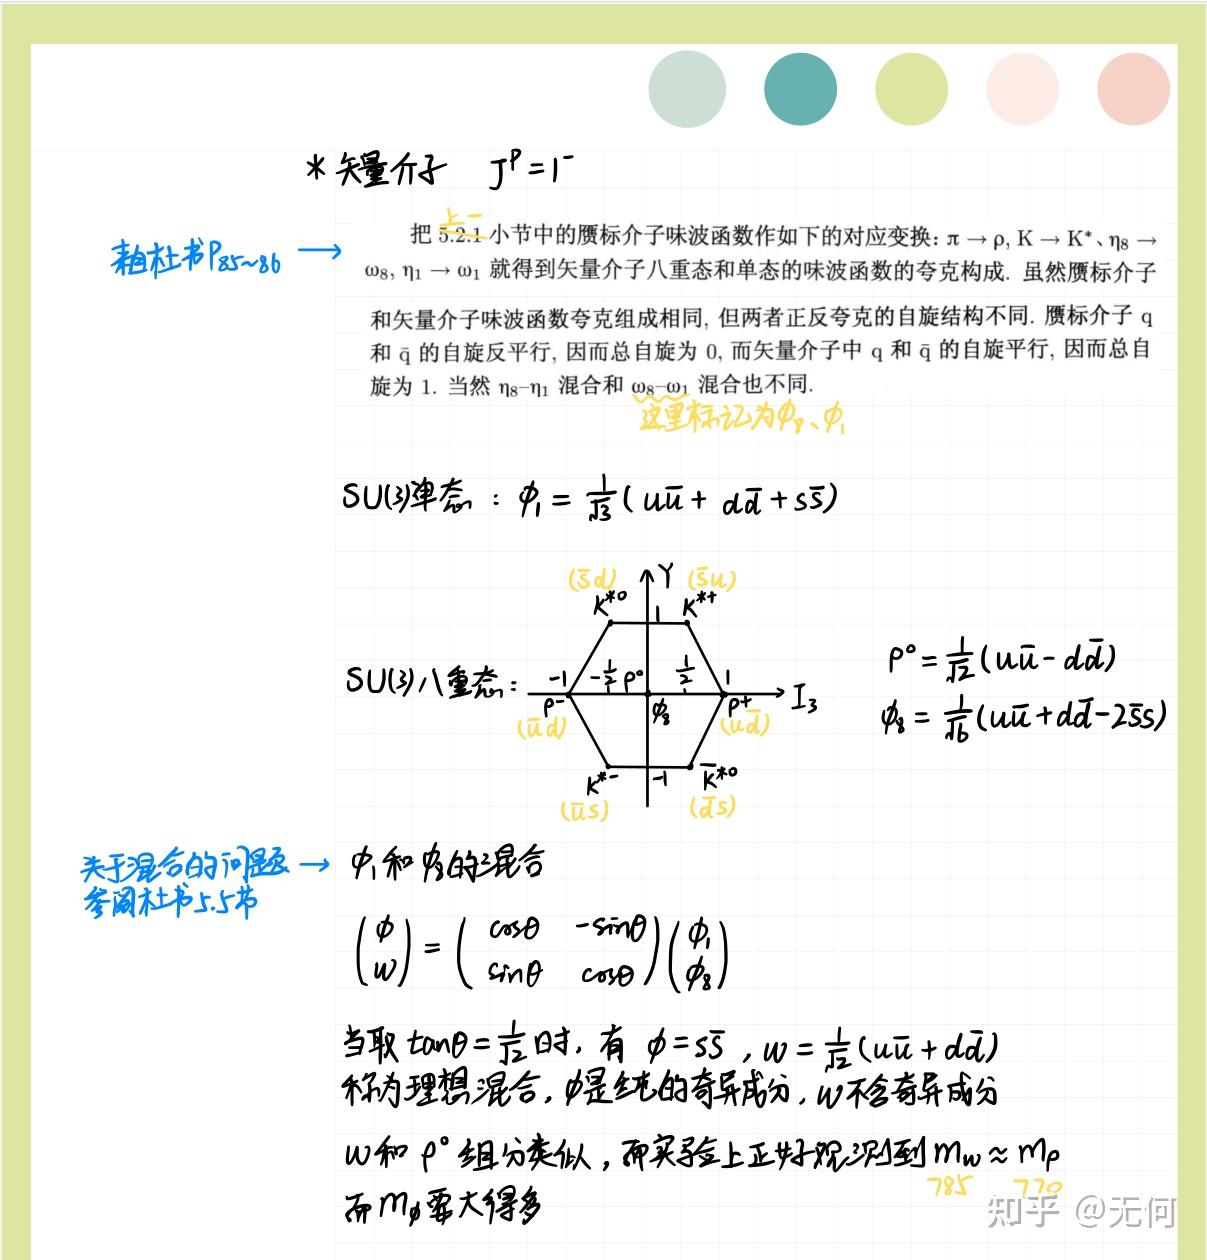 * 矢量介子 J^P = 1^-
上一
把 5.2.1 小节中的赝标介子味波函数作如下的对应变换: π → ρ, K → K*、η₈ →
来自杜书P₈₅~₈₆ →
ω₈, η₁ → ω₁ 就得到矢量介子八重态和单态的味波函数的夸克构成. 虽然赝标介子
和矢量介子味波函数夸克组成相同, 但两者正反夸克的自旋结构不同. 赝标介子 q
和 q̄ 的自旋反平行, 因而总自旋为 0, 而矢量介子中 q 和 q̄ 的自旋平行, 因而总自
旋为 1. 当然 η₈–η₁ 混合和 ω₈–ω₁ 混合也不同.
这里标记为ϕ₈、ϕ₁
SU(3)单态: ϕ₁ = 1/√3 (uū + dd̄ + ss̄)
(s̄d) Y (s̄u)
K*⁰ 1 K*⁺
SU(3)八重态: -1 -1/2 ρ⁰ 1/2 1 I₃
ρ⁻ ϕ₈ ρ⁺
(ūd) (ud̄)
K*⁻ -1 K̄*⁰
(ūs) (d̄s)
ρ⁰ = 1/√2 (uū - dd̄)
ϕ₈ = 1/√6 (uū + dd̄ - 2s̄s)
关于混合的问题 →
参阅杜书5.5节
ϕ₁和ϕ₈的混合
(ϕ ω) = (cosθ -sinθ sinθ cosθ)(ϕ₁ ϕ₈)
当取 tanθ = 1/√2 时, 有 ϕ = ss̄, ω = 1/√2 (uū + dd̄)
称为理想混合, ϕ是纯的奇异成分, ω不含奇异成分
ω和 ρ⁰ 组分类似, 而实验上正好观测到 m_ω ≈ m_ρ
785 770
而 m_ϕ 要大得多
知乎 @无何